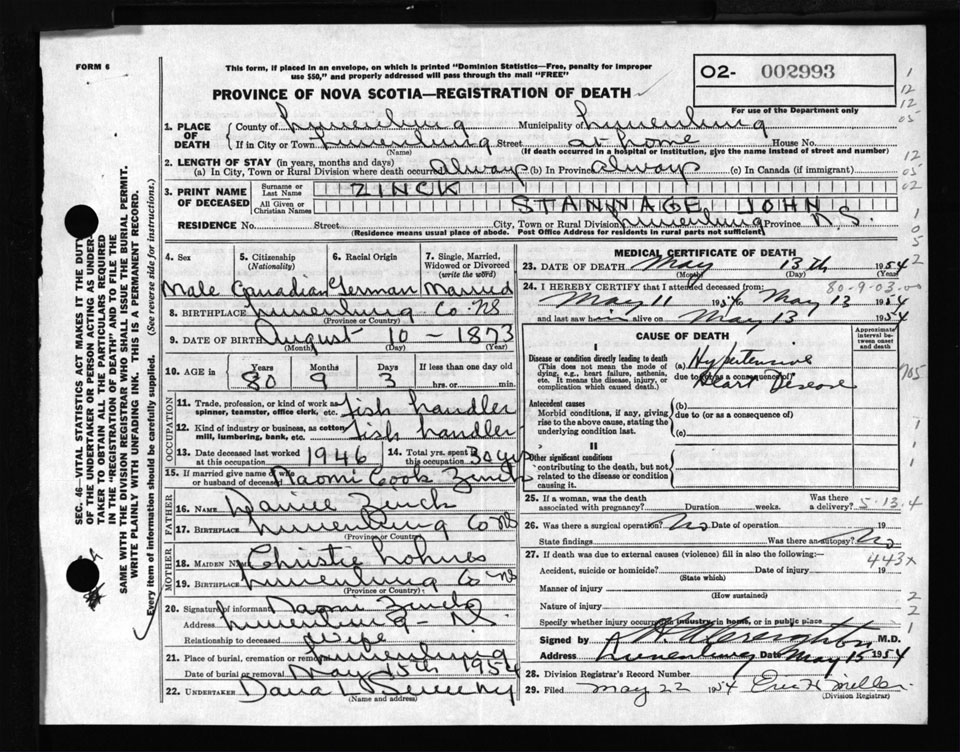 FORM 6
This form, if placed in an envelope, on which is printed "Dominion Statistics—Free, penalty for improper
use $50," and properly addressed will pass through the mail "FREE"
02- 002993
For use of the Department only
PROVINCE OF NOVA SCOTIA—REGISTRATION OF DEATH
1. PLACE OF DEATH
County of Lunenburg Municipality of Lunenburg
If in City or Town Lunenburg Street at home House No.
(Name) (If death occurred in a hospital or institution, give the name instead of street and number)
2. LENGTH OF STAY (in years, months and days)
(a) In City, Town or Rural Division where death occurred always (b) In Province always (c) In Canada (if immigrant)
3. PRINT NAME OF DECEASED
Surname or Last Name ZINCK
All Given or Christian Names STANNAGE JOHN
RESIDENCE No. Street City, Town or Rural Division Lunenburg Province N.S.
(Residence means usual place of abode. Post Office Address for residents in rural parts not sufficient)
SEC. 46—VITAL STATISTICS ACT MAKES IT THE DUTY
OF THE UNDERTAKER OR PERSON ACTING AS UNDER-
TAKER TO OBTAIN ALL THE PARTICULARS REQUIRED
IN THE "REGISTRATION OF DEATH" AND TO FILE THE
SAME WITH THE DIVISION REGISTRAR WHO SHALL ISSUE THE BURIAL PERMIT.
WRITE PLAINLY WITH UNFADING INK. THIS IS A PERMANENT RECORD.
Every item of information should be carefully supplied. (See reverse side for instructions.)
4. Sex 5. Citizenship (Nationality) 6. Racial Origin 7. Single, Married, Widowed or Divorced (write the word)
Male Canadian German Married
8. BIRTHPLACE Lunenburg Co-NS
(Province or Country)
9. DATE OF BIRTH August 10 - 1873
(Month) (Day) (Year)
10. AGE in Years Months Days If less than one day old
80 9 3 hrs. or min.
OCCUPATION
11. Trade, profession, or kind of work as spinner, teamster, office clerk, etc. fish handler
12. Kind of industry or business, as cotton mill, lumbering, bank, etc. fish handler
13. Date deceased last worked at this occupation 1946 14. Total yrs. spent in this occupation 30 yrs
15. If married give name of wife or husband of deceased Naomi Cook Zinck
FATHER
16. Name Zinck
17. Birthplace Lunenburg Co-NS
(Province or Country)
MOTHER
18. Maiden Name Christie Lohnes
19. Birthplace Lunenburg Co-NS
(Province or Country)
20. Signature of informant Naomi Zinck
Address Lunenburg - N.S.
Relationship to deceased Wife
21. Place of burial, cremation or removal Lunenburg
Date of burial or removal May 15th 1954
22. UNDERTAKER Dana L Sweeny
(Name and address)
MEDICAL CERTIFICATE OF DEATH
23. DATE OF DEATH May 13th 1954
(Month) (Day) (Year)
24. I HEREBY CERTIFY that I attended deceased from: 80-9-03.00
May 11 1954 to May 13 1954
and last saw him alive on May 13 1954
CAUSE OF DEATH
Approximate interval between onset and death
I
Disease or condition directly leading to death (a) Hypertensive
(This does not mean the mode of dying, e.g., heart failure, asthenia, etc. It means the disease, injury, or complication which caused death.)
due to (or as a consequence of) Heart Disease
Antecedent causes (b)
Morbid conditions, if any, giving rise to the above cause, stating the underlying condition last.
due to (or as a consequence of)
(c)
II
Other significant conditions
contributing to the death, but not related to the disease or condition causing it.
25. If a woman, was the death associated with pregnancy? Duration weeks. Was there a delivery? 5-13.4
26. Was there a surgical operation? No Date of operation 19
State findings Was there an autopsy? No
27. If death was due to external causes (violence) fill in also the following:— 443x
Accident, suicide or homicide? Date of injury 19
(State which)
Manner of injury
(How sustained)
Nature of injury
Specify whether injury occurred in industry, in home, or in public place
Signed by Creighton M.D.
Address Lunenburg Date May 15 1954
28. Division Registrar's Record Number
29. Filed May 22 1954 Miller
(Division Registrar)